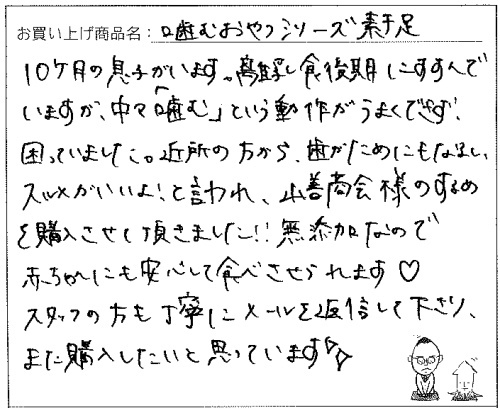 お買い上げ商品名：噛むおやつシリーズ素手足
10ケ月の息子がいます。離乳食後期にすすんで
いますが、中々「噛む」という動作がうまくできず、
困っていました。近所の方から、歯がためにもなるし、
スルメがいいよ！と言われ、山善商会様のするめ
を購入させて頂きました!!無添加なので
赤ちゃんにも安心して食べさせられます♡
スタッフの方も丁寧にメールを返信して下さり、
また購入したいと思っています